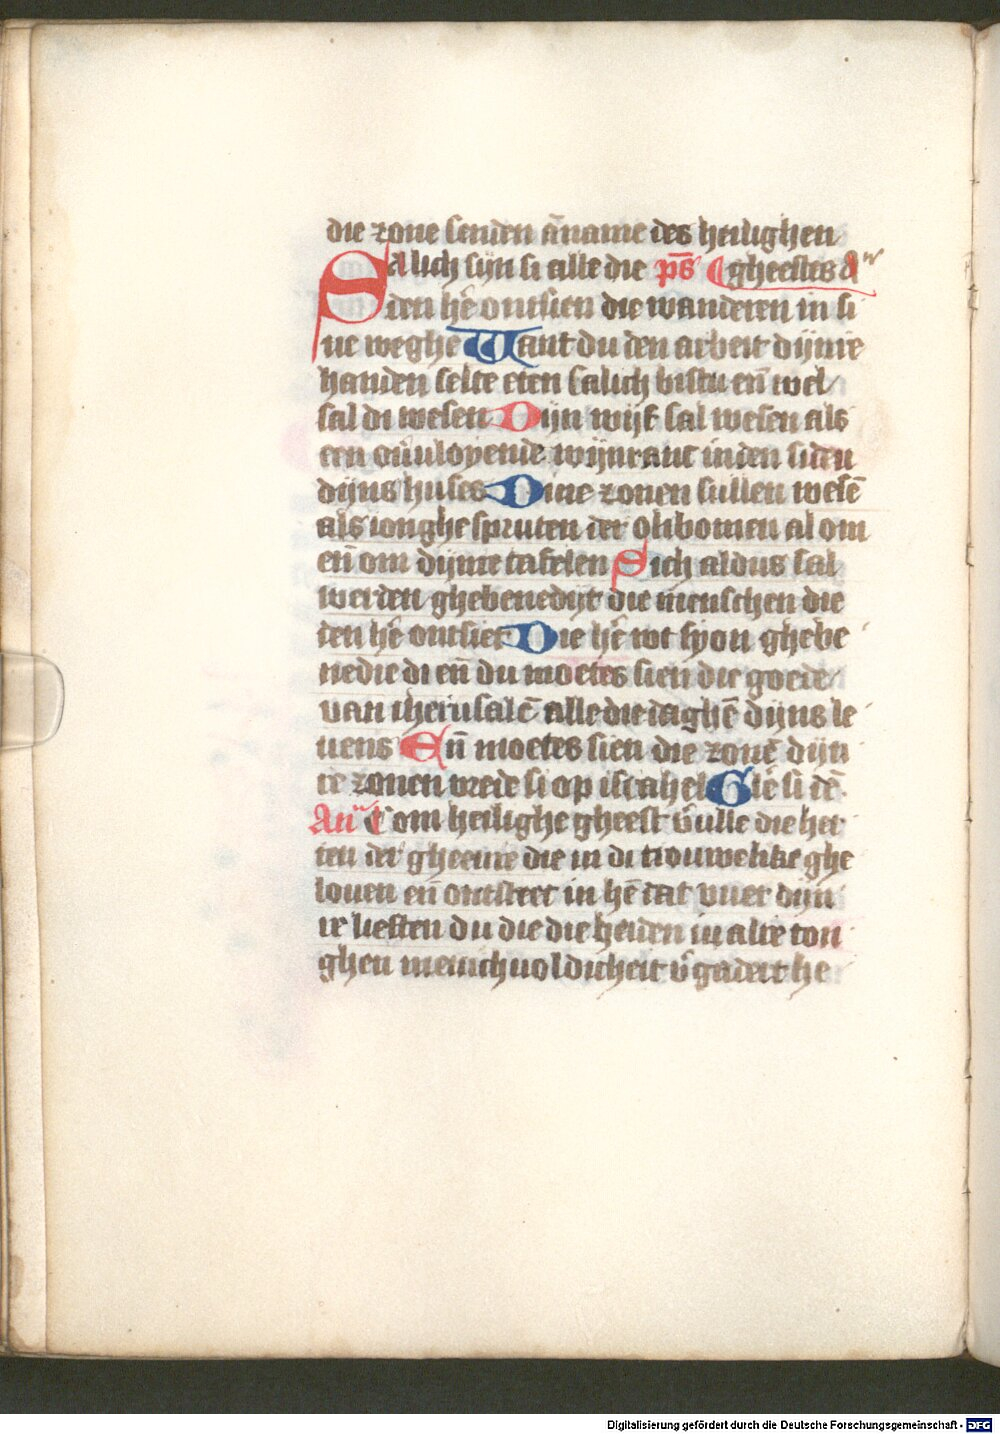 die zone senden ān name des heilighen
Salich sijn si alle die p̄s ¶ gheestes aᵐ
den hē ontsien die wanderen in si
ne weghe Want du den arbeit dijnre
handen selte eten salich bistu en̄ wel
sal di wesen Dijn wijf sal wesen als
een ou̅vloyende wijnranc inden siden
dijns huses Dine zonen sullen wesē
als ionghe spruten der olibomen al om
en̄ om dijnre tafelen Sich aldus sal
werden ghebenedijt die menschen die
den hē ontsiet Die hē wt syon ghebe
nedie di en̄ du moetes sien die goede
van iherusalē alle die daghē dijns le
uens En̄ moetes sien die zonē dijn
re zonen vrede si op israhel Glē si dē
Anᵃ Com heilighe gheest v̄ulle die her
ten der gheenre die in di trouwelike ghe
louen en̄ ontsteec in hē dat vuer dijn
re lieften du die die heiden in alre ton
ghen menichuoldicheit v̄gadert he